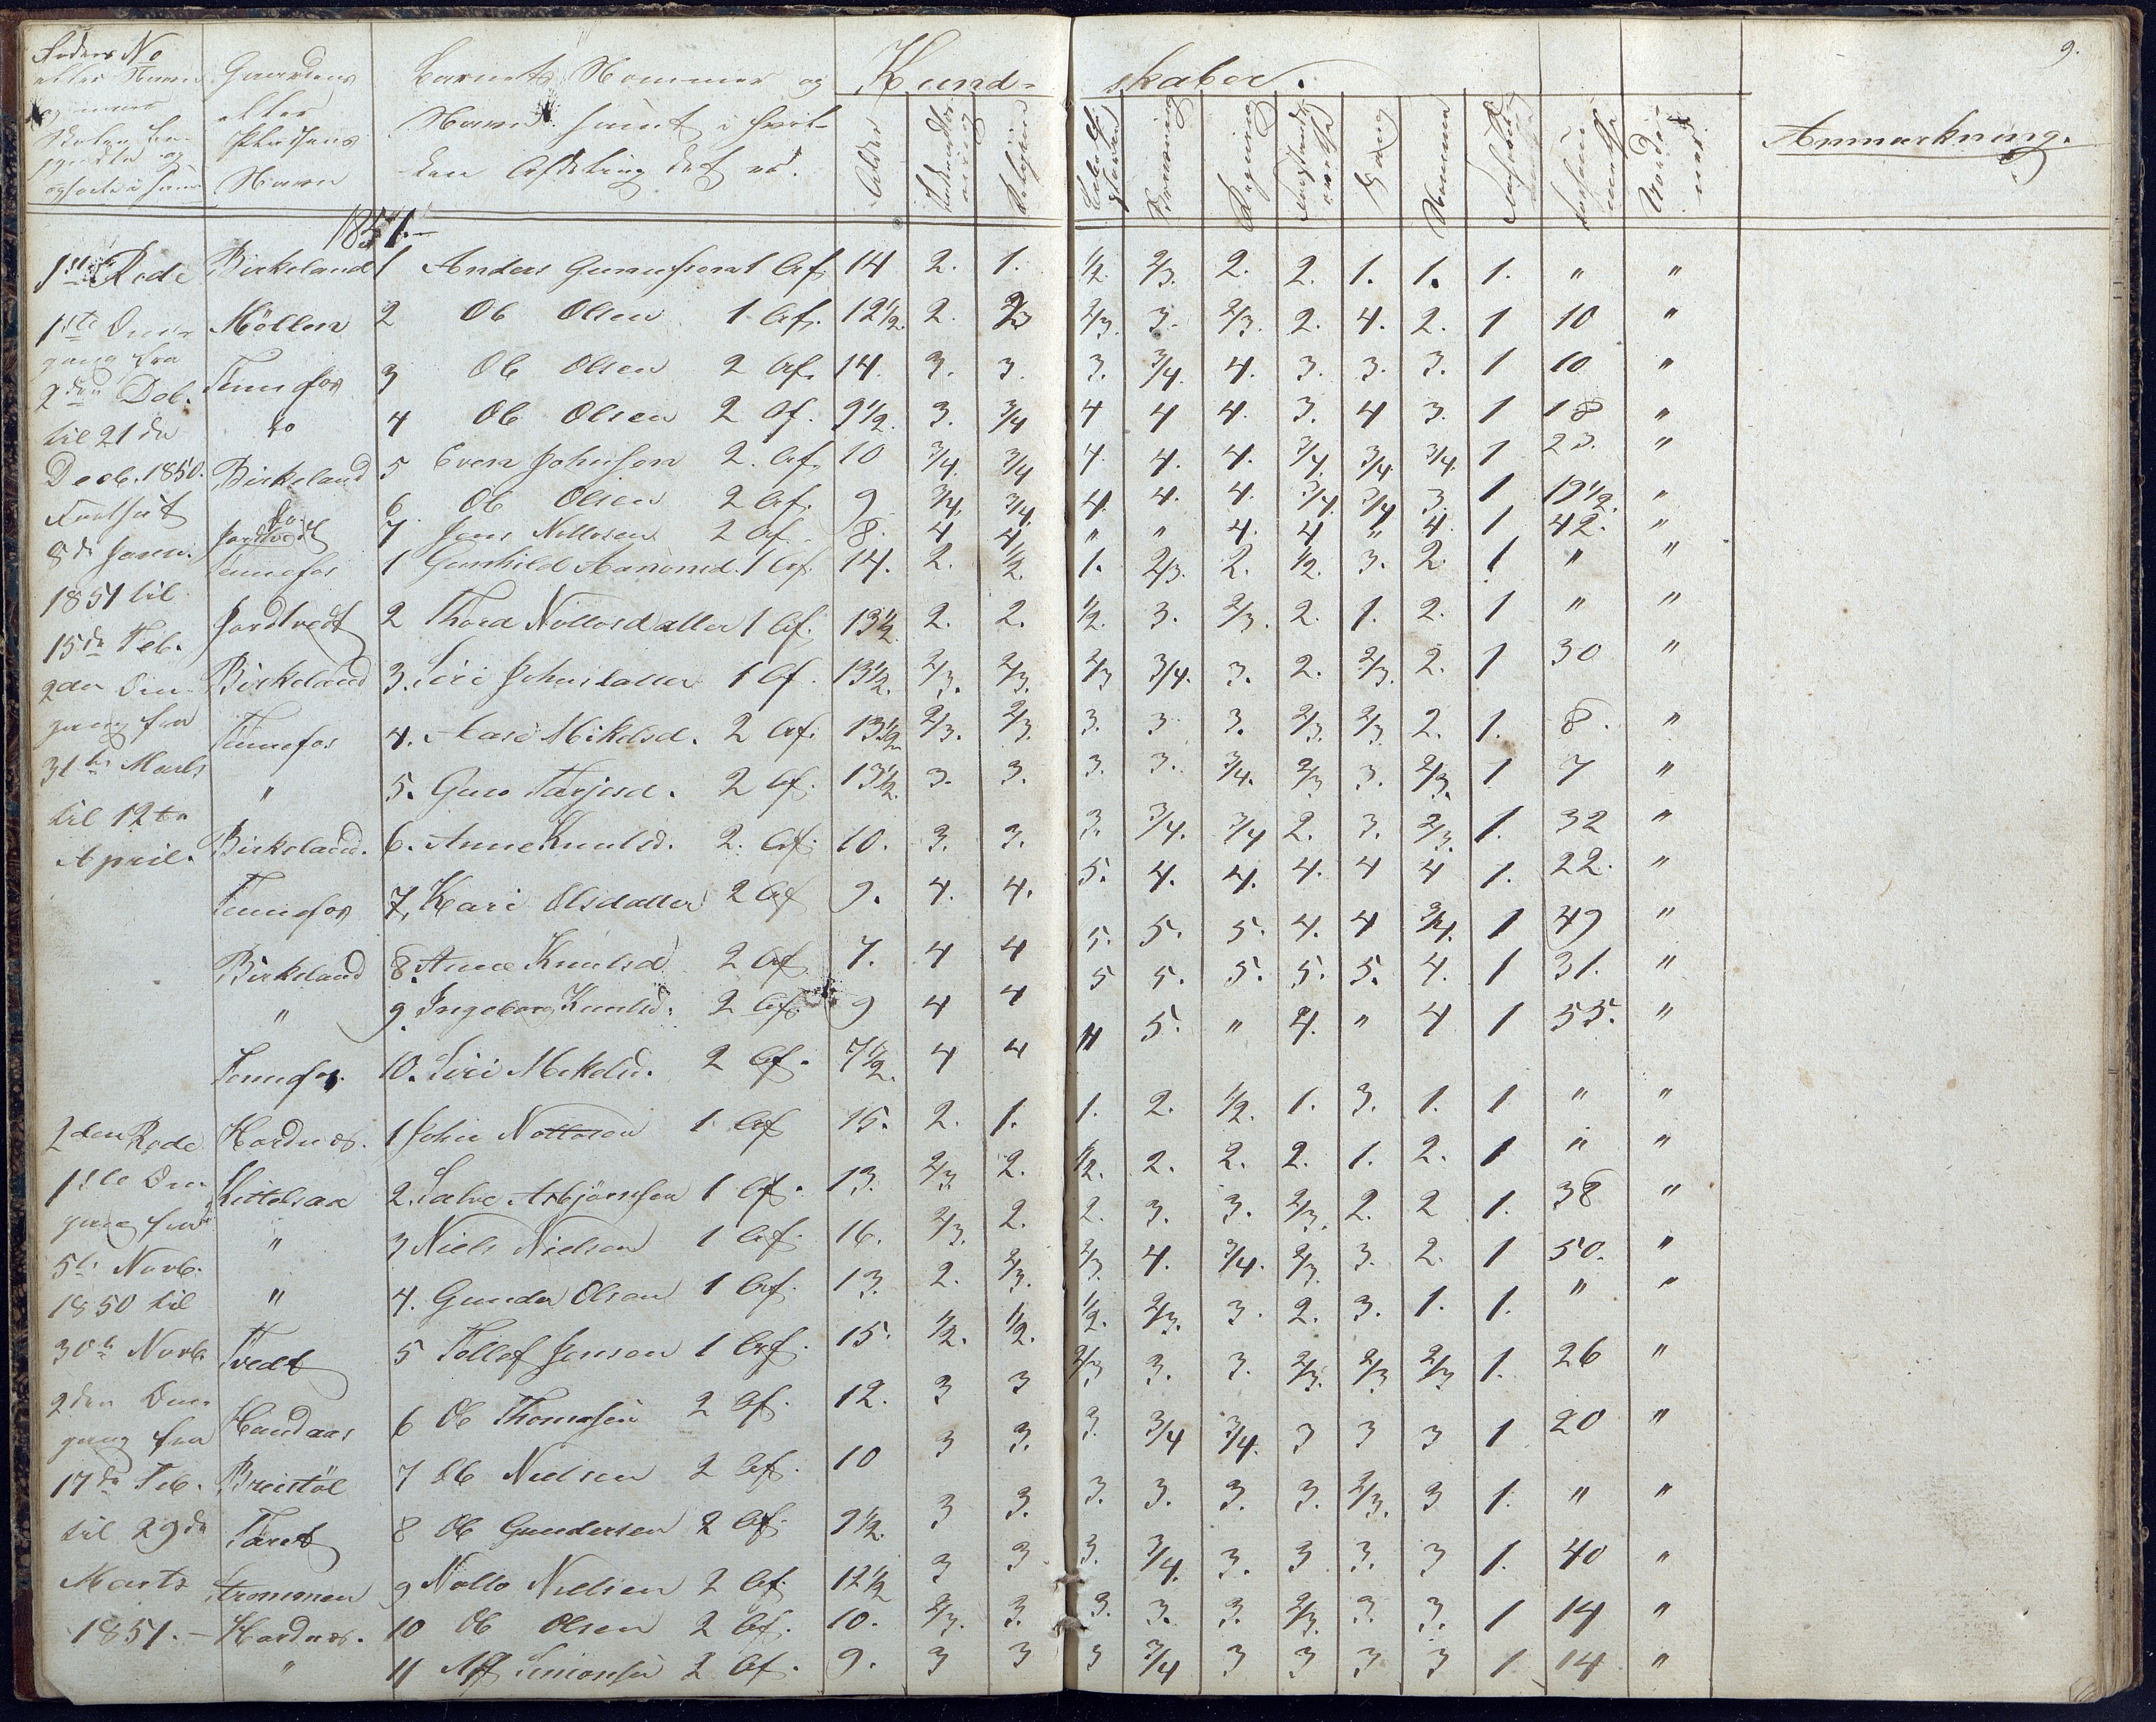 9.
Rodens No eller Navn
Gaardens eller Pladsens Navn
Barnets Nommer og Navn samt i hvil-
ken Afdeling det er.
Kund- skaber.
Alder
Religion
Skrivning
Regning
Sang
Anmærkning.
1851.
1ste Rode Birkeland 1 Anders Gunnufsen 1 Af. 14 2. 1. 1/2. 2/3. 2. 2. 1. 1. 1. " "
1ste Om- Möllen 2 Ole Olsen 1 Af. 12 1/2. 2. 2/3 2/3. 3. 2/3. 2. 4. 2. 1 10 "
gang fra
2den Deb. Tennefos 3 Ole Olsen 2 Af. 14 3. 3. 3. 3/4. 4. 3. 3. 3. 1 10 "
til 21de do 4 Ole Olsen 2 Af. 9 1/2. 3. 3/4 4 4 4. 3. 4 3. 1 18 "
Decb. 1850. Birkeland 5 Even Johnsen 2. Af. 10 3/4. 3/4 4. 4. 4. 3/4. 3/4. 3/4. 1 23. "
Fortsat do 6 Ole Olsen 2 Af. 9 3/4. 3/4. 4. 4. 4. 3/4. 3/4 3. 1 19 1/2. "
8de Janu. Jordtvedt 7 Jens Nottosen 2 Af. 8. 4 4 " " 4. 4 " 4. 1 42. "
Tennefos 1 Gunhild Aanonsd. 1 Af. 14. 2. 1/2. 1. 2/3. 2. 1/2 3. 2. 1 " "
1851 til Jordtvedt 2 Thora Nottosdatter 1 Af. 13 1/2. 2. 2. 1/2. 3. 2/3. 2. 1. 2. 1 " "
15de Feb.
2den Om- Birkeland 3. Siri Johnsdatter 1 Af. 13 1/2. 2/3. 2/3. 2/3 3/4. 3. 2. 2/3. 2. 1 30 "
gang fra Tennefos 4. Aase Mikelsd. 2 Af. 13 1/2. 2/3. 2/3. 3. 3 3. 2/3. 2/3. 2. 1. 8. "
31te Marts " 5. Guro Tarjesd. 2 Af. 13 1/2. 3. 3. 3. 3. 3/4. 2/3 3. 2/3. 1 7 "
til 12te
April. Birkeland. 6. Anne Knudsd. 2. Af. 10. 3. 3. 3. 3/4. 3/4 2. 3. 2/3. 1. 32 "
Tennefos 7, Kari Olsdatter 2 Af 9. 4. 4. 5. 4. 4. 4. 4 4 1. 22. "
Birkeland 8. Anne Knudsd 2 Af. 7. 4 4 5. 5. 5. 4. 4 3/4. 1 49 "
" 9. Ingeborg Knudsd. 2 Af. 9 4 4 5 5. 5. 5. 5. 4. 1 31. "
Tennefos. 10. Siri Mikelsd. 2 Af. 7 1/2. 4 4 " 5. " 4. " 4 1 55. "
2den Rode Hordnes. 1 John Nottosen 1 Af 15. 2. 1. 1. 2. 1/2. 1. 3. 1. 1 " "
1ste Om- Kittelsaa 2. Salve Asbjörnsen 1 Af. 13. 2/3. 2. 1/2. 2. 2. 2. 1. 2. 1 " "
gang fra " 3 Niels Nielsen 1 Af. 16. 2/3. 2. 2. 3. 3. 2/3. 2. 2 1. 38 "
5te Novb.
1850 til " 4. Gunder Olsen 1 Af. 13. 2. 2/3. 2/3. 4. 3/4. 2/3. 3. 2. 1 50. "
30te Novb. Tvedt 5 Tollef Jensen 1 Af. 15. 1/2. 1/2. 1/2. 2/3. 3. 2. 3. 1. 1. " "
2den Om-
gang fra Haudaas 6 Ole Thomassen 2 Af. 12. 3 3 2/3 3. 3. 2/3. 2/3 2/3 1. 26 "
17de Feb. Breistöl 7 Ole Nielsen 2 Af. 10 3 3. 3. 3/4 3/4. 3 3 3 1 20 "
til 29de Taret 8 Ole Gundersen 2 Af. 9 1/2. 3 3. 3. 3. 3. 3. 2/3. 3 1. " "
Marts Strømmen 9 Notto Nielsen 2 Af. 12 1/2 3 3 3. 3/4. 3. 3 3. 3 1. 40 "
1851. – Hordnes. 10 Ole Olsen 2 Af. 10. 2/3. 3. 3. 3. 3. 2/3. 3. 3. 1 14 "
" 11 Simonsen 2 Af. 9. 3 3 3 3/4 3 3 3 3 1 14 "